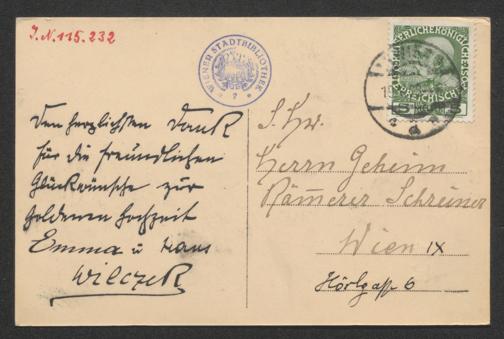 J.N. 115.232
WIENER STADTBIBLIOTHEK
Den herzlichsten Dank
für die freundlichen
Glückwünsche zur
goldenen Hochzeit
Emma u Hans
Wilczek
S. Hw.
Herrn Geheim
Kämmerer Schreiner
Wien IX
Hörlgasse 6